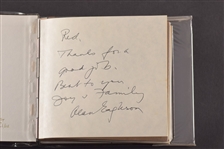 Red,
Thanks for a
good job.
Best to you
Joy & Family
Alan